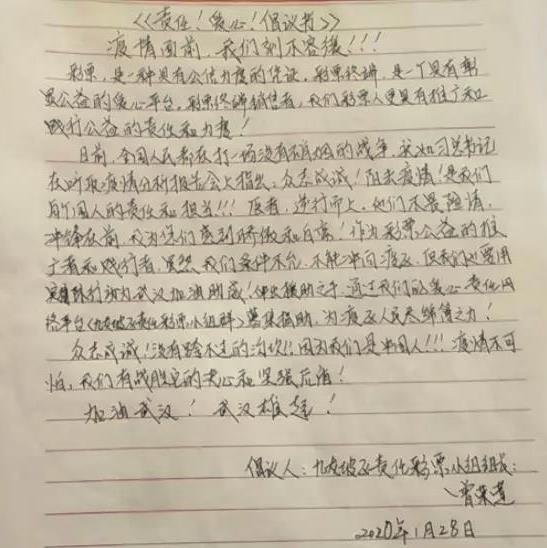 《《责任！爱心！倡议书》》
疫情面前，我们刻不容缓！！！
彩票，是一种具有公信力度的凭证，彩票终端，是一个具有彰
显公益的爱心平台，彩票终端销售者，我们彩票人更具有推广和
践行公益的责任和力度！
目前，全国人民都在打一场没有硝烟的战争，正如习总书记
在听取疫情分析报告会上指出，众志成诚！阻击疫情！是我们
每个国人的责任和担当！！！医者，逆行而上，他们不畏险情，
冲锋在前，我为他们感到骄傲和自豪！作为彩票公益的推
广者和践行者，虽然我们条件不允，不能冲向疫区，但我们必要用
实际行动为武汉加油助威！伸出援助之手，通过我们的爱心责任网
络平台《九龙坡区责任彩票小组群》募集援助，为疫区人民尽绵薄之力！
众志成诚！没有跨不过的沟坎！！因为我们是中国人！！！疫情不可
怕，我们有战胜它的决心和坚强后盾！
加油武汉！武汉雄起！
倡议人：九龙坡区责任彩票小组组长：
曾荣莲
2020年1月28日